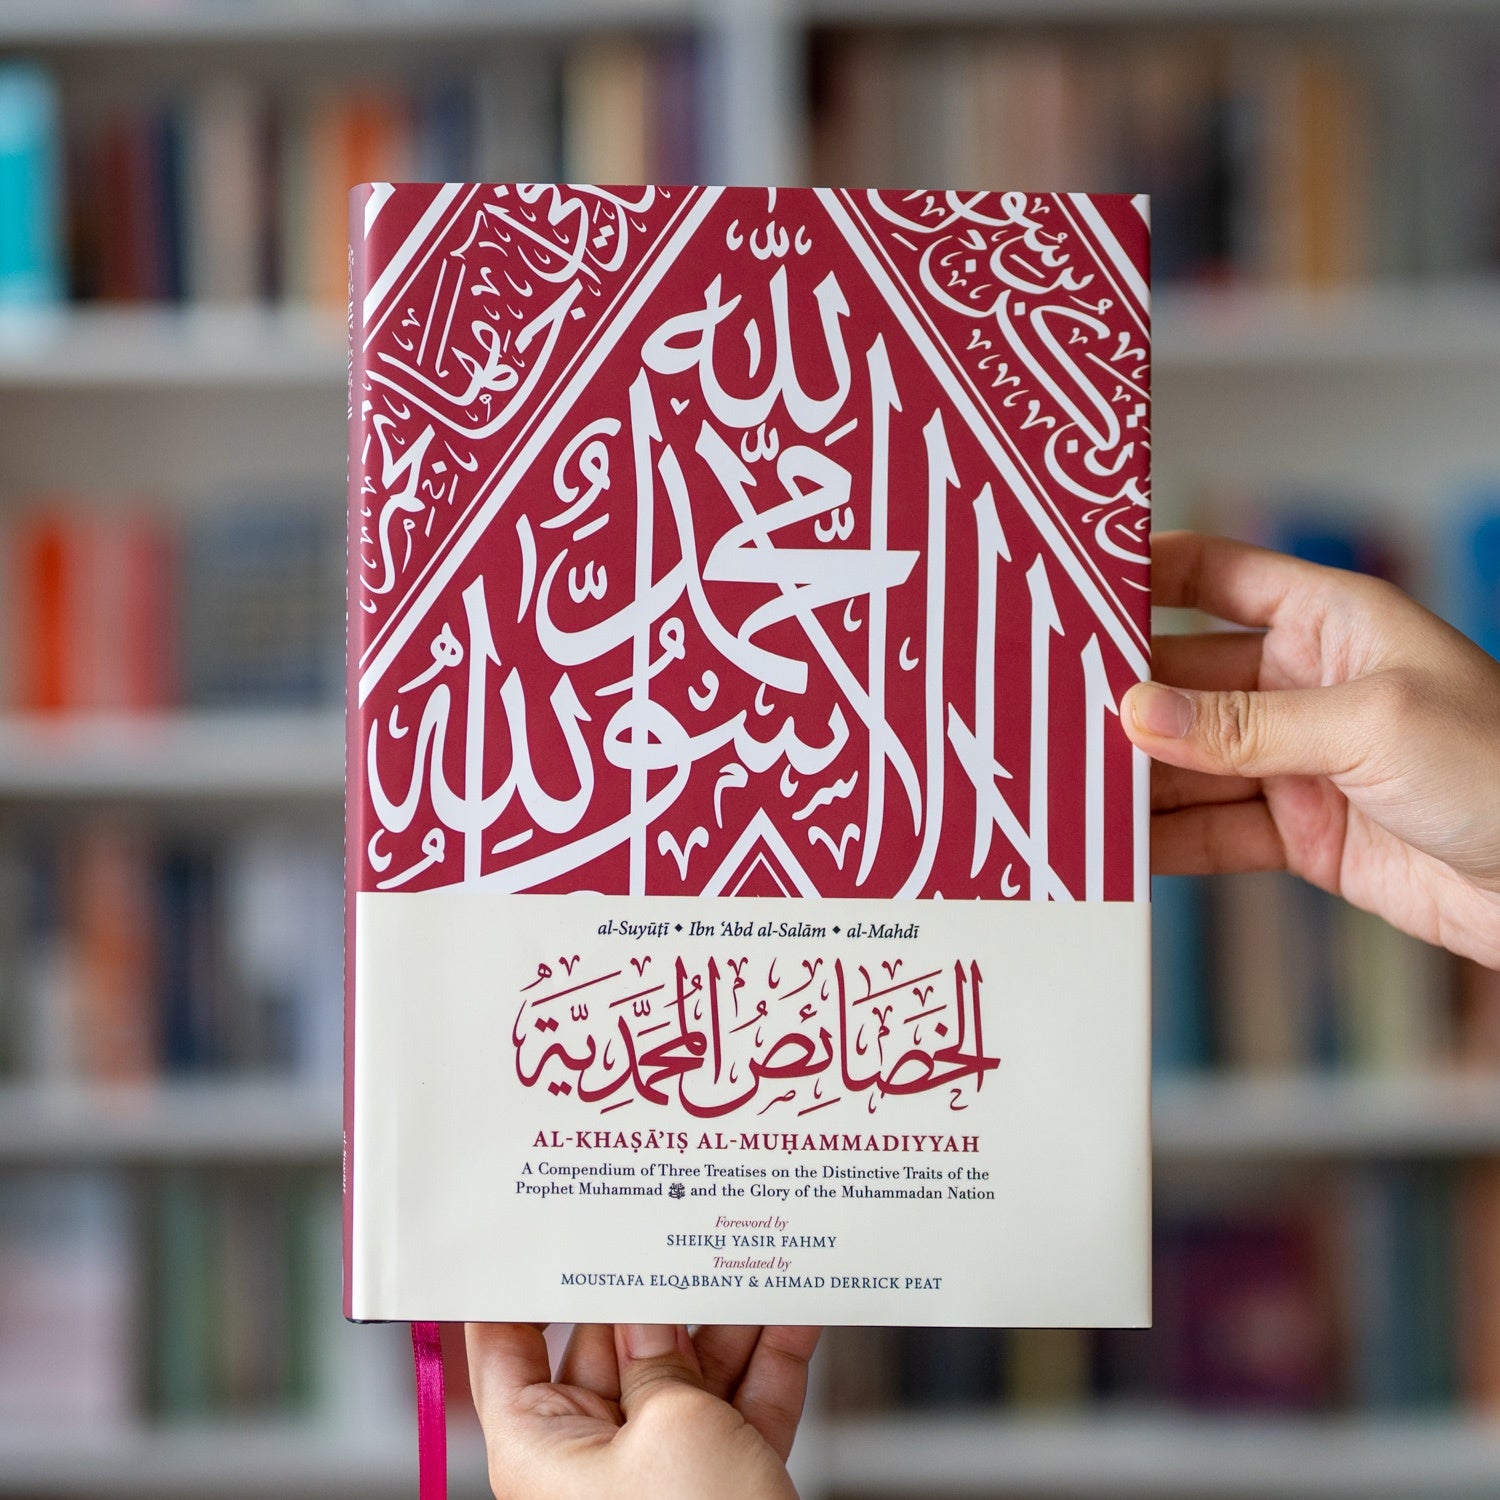 لا إله إلا الله محمد رسول الله
al-Suyūṭī ◆ Ibn ʿAbd al-Salām ◆ al-Mahdī
الخَصَائِصُ المُحَمَّدِيَّةُ
AL-KHAṢĀʾIṢ AL-MUḤAMMADIYYAH
A Compendium of Three Treatises on the Distinctive Traits of the
Prophet Muhammad ﷺ and the Glory of the Muhammadan Nation
Foreword by
SHEIKH YASIR FAHMY
Translated by
MOUSTAFA ELQABBANY & AHMAD DERRICK PEAT